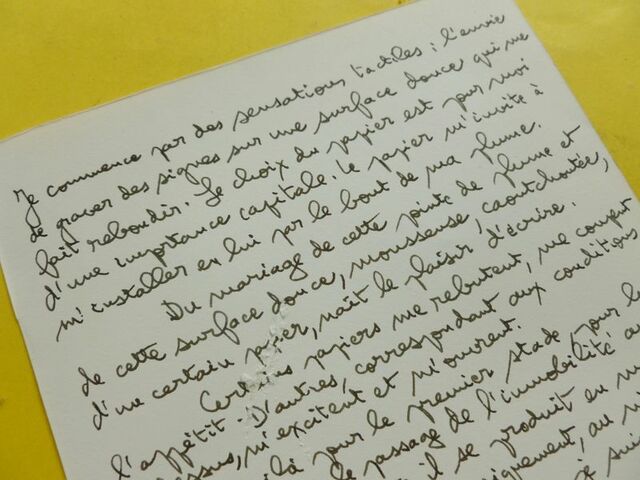 Je commence par des sensations tactiles : l'envie
de graver des signes sur une surface douce qui me
fait rebondir. Le choix du papier est pour moi
d'une importance capitale. Le papier m'invite à
m'installer en lui par le bout de ma plume.
Du mariage de cette pointe de plume et
de cette surface douce, mousseuse, caoutchoutée,
d'un certain papier, naît le plaisir d'écrire.
Certains papiers me rebutent, me coupent
l'appétit. D'autres, correspondant aux conditions
m'excitent et m'ouvrent.
pour le premier stade, pour
passage de l'immobilité
il se produit en